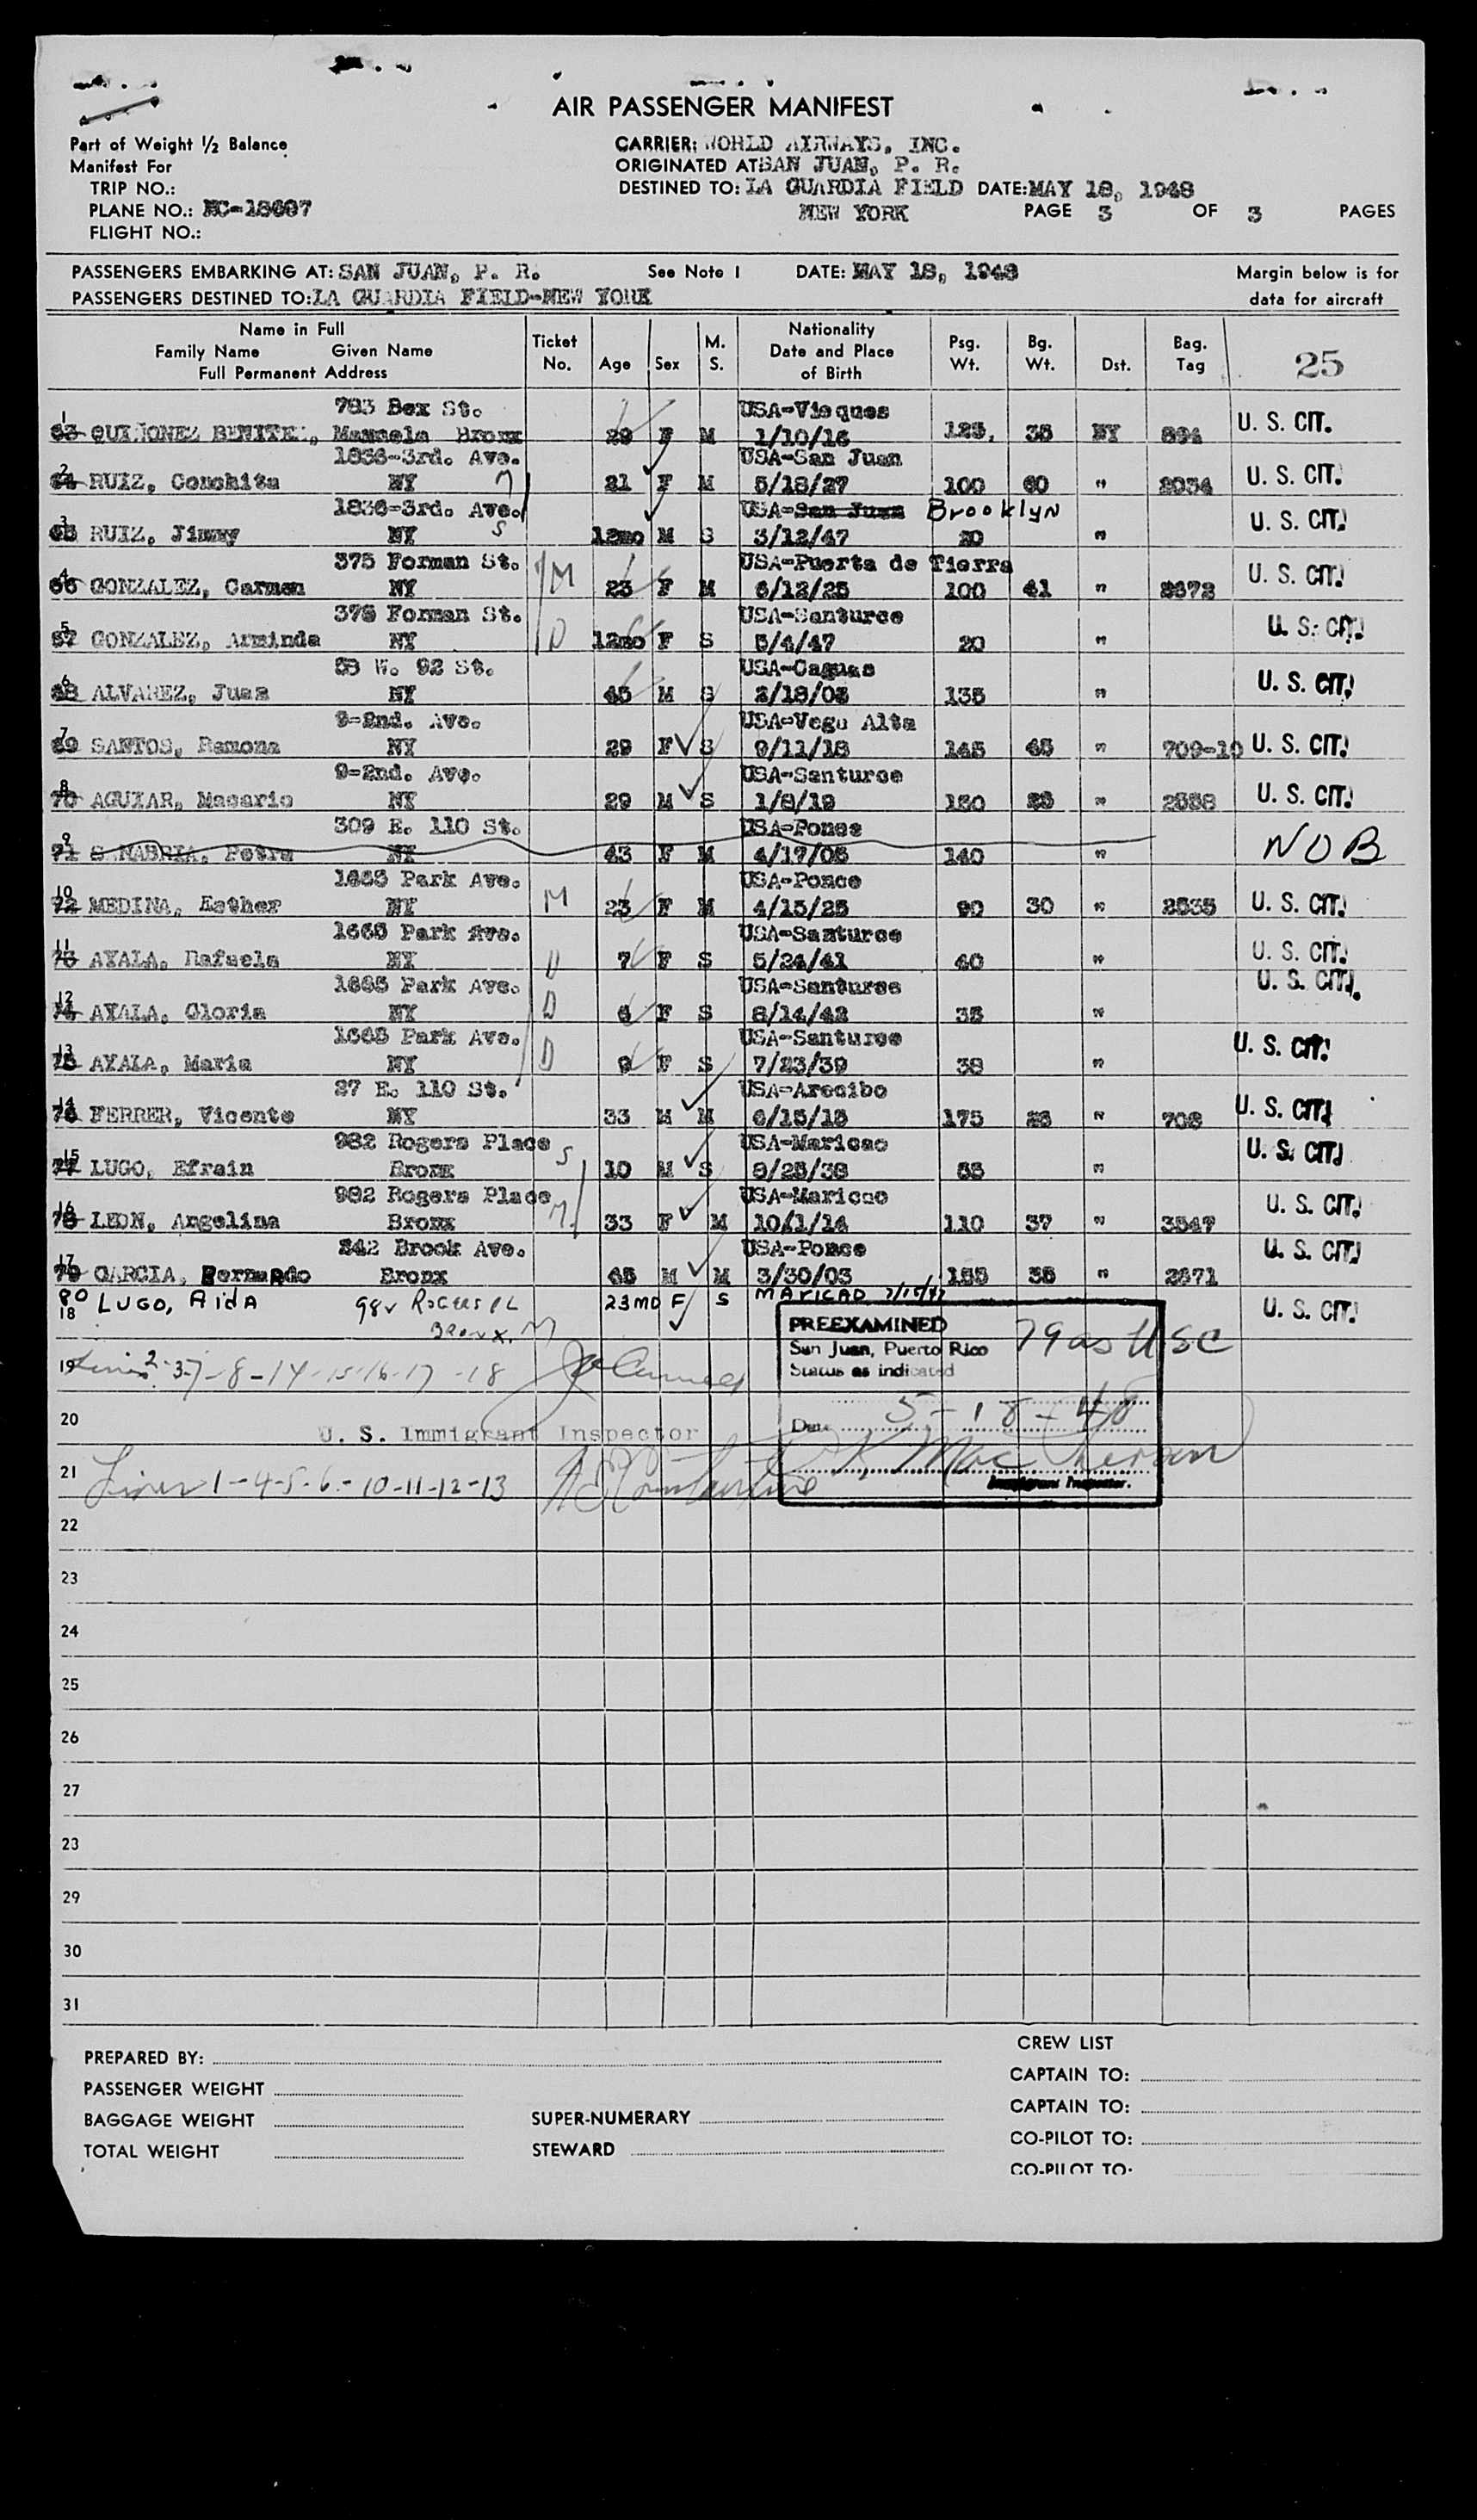 AIR PASSENGER MANIFEST
Part of Weight 1/2 Balance
Manifest For
TRIP NO.:
PLANE NO.: NC-18607
FLIGHT NO.:
CARRIER: WORLD AIRWAYS, INC.
ORIGINATED AT: SAN JUAN, P. R.
DESTINED TO: LA GUARDIA FIELD DATE: MAY 18, 1948
NEW YORK PAGE 3 OF 3 PAGES
PASSENGERS EMBARKING AT: SAN JUAN, P. R. See Note 1 DATE: MAY 18, 1948 Margin below is for
PASSENGERS DESTINED TO: LA GUARDIA FIELD-NEW YORK data for aircraft
Name in Full Ticket No. Age Sex M. S. Nationality Psg. Wt. Bg. Wt. Dst. Bag. Tag 25
Family Name Given Name Date and Place
Full Permanent Address of Birth
783 Bex St. USA-Vieques
1 63 QUIÑONEZ BENITEZ, Manuela Bronx 29 F M 1/10/16 125, 35 NY 894 U. S. CIT.
1836-3rd. Ave. USA-San Juan
2 64 RUIZ, Conchita NY M 21 F M 5/18/27 100 60 " 2034 U. S. CIT.
1836-3rd. Ave. USA-San Juan Brooklyn
3 65 RUIZ, Jimmy NY S 12mo M S 3/12/47 20 " U. S. CIT.
375 Forman St. USA-Puerta de Tierra
4 66 GONZALEZ, Carmen NY M 23 F M 6/12/25 100 41 " 2672 U. S. CIT.
375 Forman St. USA-Santurce
5 67 GONZALEZ, Arminda NY D 12mo F S 5/4/47 20 " U. S. CIT.
53 W. 92 St. USA-Caguas
6 68 ALVAREZ, Juan NY 45 M S 2/18/03 135 " U. S. CIT.
9-2nd. Ave. USA-Vega Alta
7 69 SANTOS, Ramona NY 29 F S 9/11/18 145 45 " 709-10 U. S. CIT.
9-2nd. Ave. USA-Santurce
8 70 AGUIAR, Macario NY 29 M S 1/8/19 150 25 " 2558 U. S. CIT.
309 E. 110 St. USA-Ponce
9 71 SANABRIA, Petra NY 43 F M 4/17/05 140 " NOB
1665 Park Ave. USA-Ponce
10 72 MEDINA, Esther NY M 23 F M 4/15/25 90 30 " 2535 U. S. CIT.
1665 Park Ave. USA-Santurce
11 73 AYALA, Rafaela NY D 7 F S 5/24/41 40 " U. S. CIT.
1665 Park Ave. USA-Santurce U. S. CIT.
12 74 AYALA, Gloria NY D 6 F S 8/14/42 35 "
1665 Park Ave. USA-Santurce U. S. CIT.
13 75 AYALA, Maria NY D 9 F S 7/23/39 38 "
27 E. 110 St. USA-Arecibo
14 76 FERRER, Vicente NY 33 M M 6/15/15 175 25 " 708 U. S. CIT.
982 Rogers Place USA-Maricao
15 77 LUGO, Efrain Bronx S 10 M S 8/25/38 55 " U. S. CIT.
982 Rogers Place USA-Maricao
16 78 LEON, Angelina Bronx M 33 F M 10/1/14 110 37 " 3547 U. S. CIT.
342 Brook Ave. USA-Ponce U. S. CIT.
17 79 GARCIA, Bernardo Bronx 65 M M 3/30/03 155 35 " 2671
80 18 LUGO, AIDA 982 ROGERS PL 23MO F S MARICAO U. S. CIT.
BRONX.
PREEXAMINED 79 as USC
San Juan, Puerto Rico
Status as indicated
19 Lines 2-3-7-8-14-15-16-17-18
Date 5-18-48
20 U. S. Immigrant Inspector
21 Lines 1-4-5-6-10-11-12-13
Immigrant Inspector.
22
23
24
25
26
27
23
29
30
31
PREPARED BY:
PASSENGER WEIGHT
BAGGAGE WEIGHT
TOTAL WEIGHT
SUPER-NUMERARY
STEWARD
CREW LIST
CAPTAIN TO:
CAPTAIN TO:
CO-PILOT TO:
CO-PILOT TO: